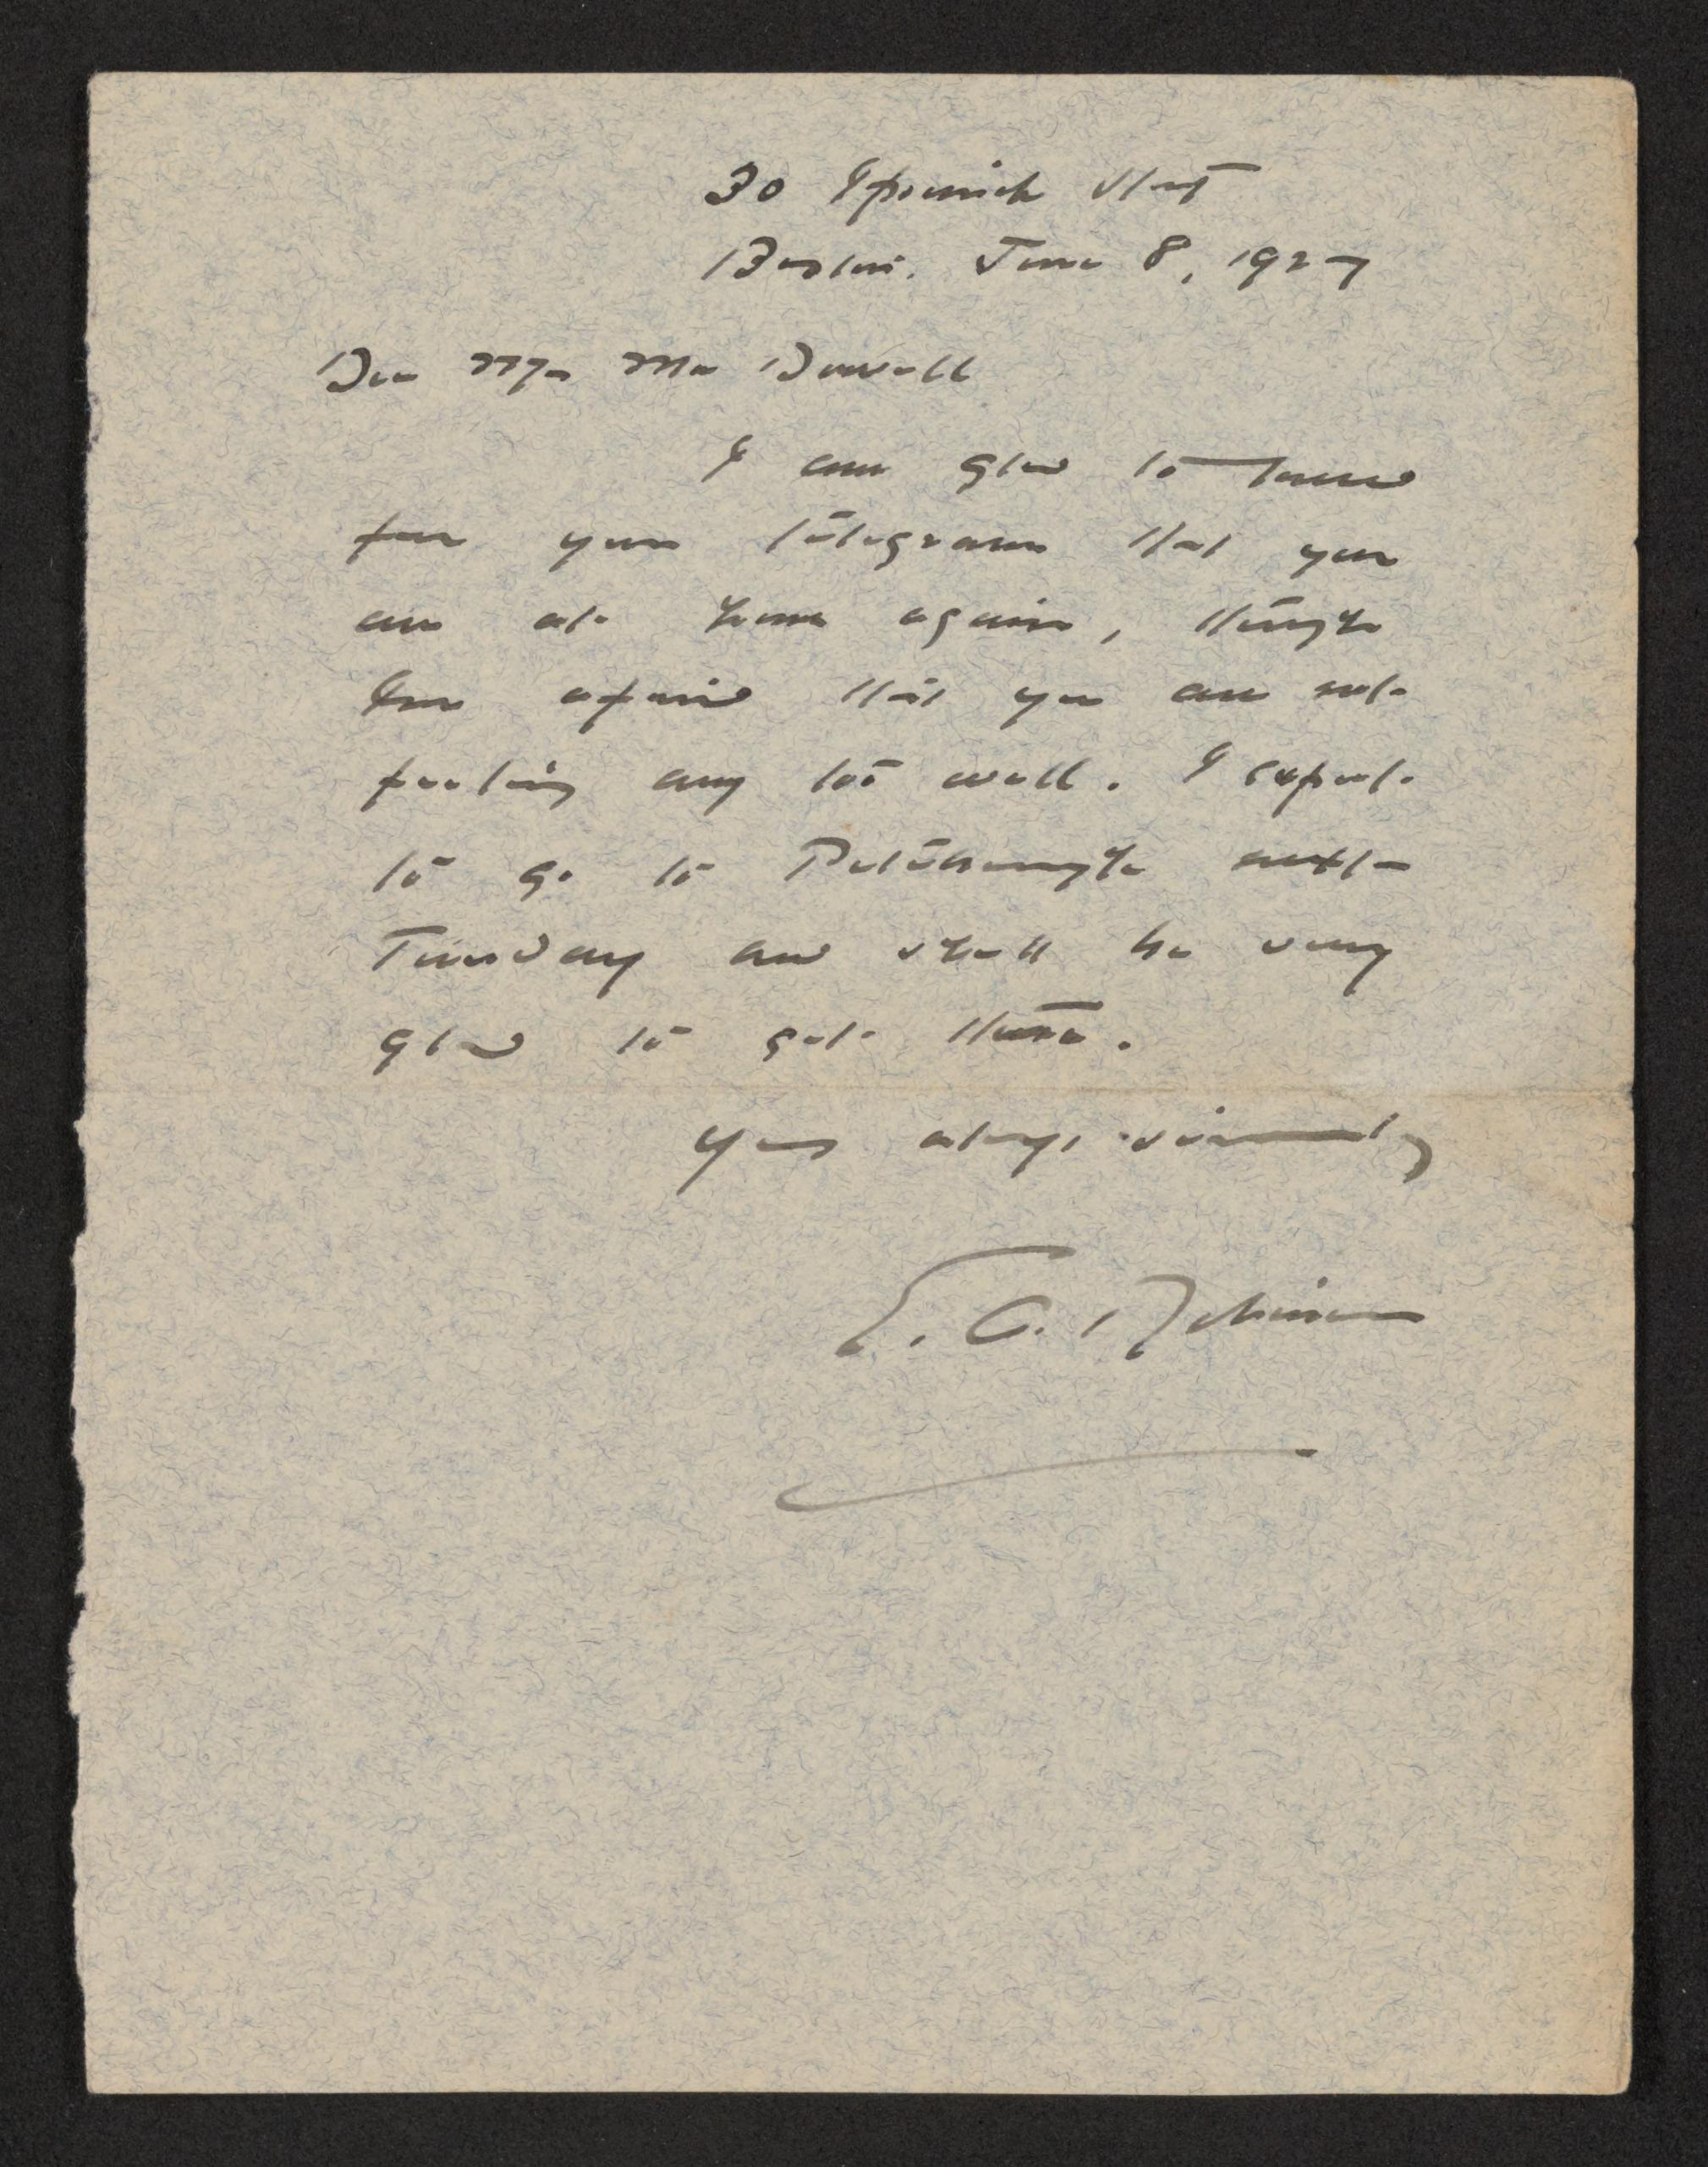 30 Ipswich Street
Boston. June 8, 1927
Dear Mrs MacDowell
I am glad to
from your telegram that you
are at home again, though
I'm afraid that you are not
feeling any too well. I expect
to go to Peterborough next
Tuesday and shall be very
glad to get there.
Yours always sincerely
E. A. Robinson